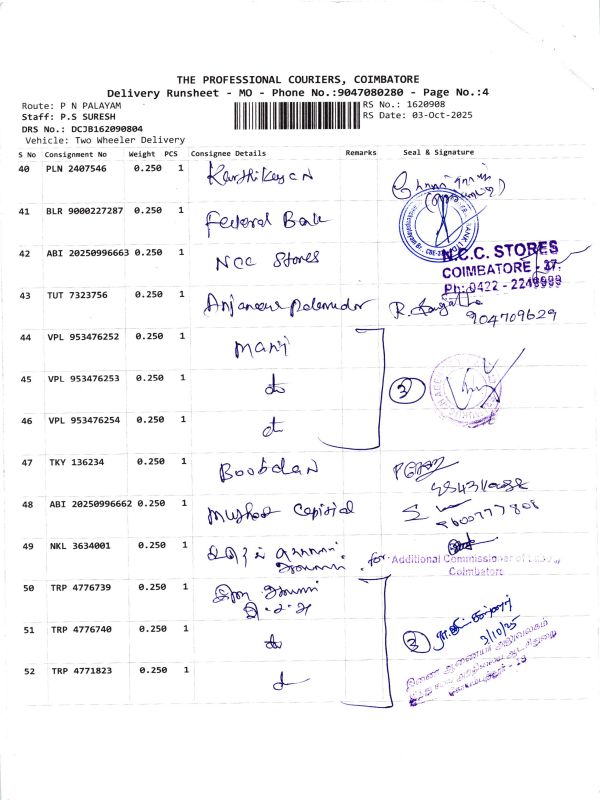 THE PROFESSIONAL COURIERS, COIMBATORE
Delivery Runsheet - MO - Phone No.:9047080280 - Page No.:4
Route: P N PALAYAM
RS No.: 1620908
Staff: P.S SURESH
RS Date: 03-Oct-2025
DRS No.: DCJB162090804
Vehicle: Two Wheeler Delivery
S No Consignment No Weight PCS Consignee Details Remarks Seal & Signature
40 PLN 2407546 0.250 1 Karthikeyan
41 BLR 9000227287 0.250 1 Federal Bank
42 ABI 20250996663 0.250 1 NCC Stores
N.C.C. STORES
COIMBATORE - 37.
Ph: 0422 - 2249999
43 TUT 7323756 0.250 1
904709629
44 VPL 953476252 0.250 1 Mani
45 VPL 953476253 0.250 1 do 3
46 VPL 953476254 0.250 1 do
47 TKY 136234 0.250 1
48 ABI 20250996662 0.250 1
9600777808
49 NKL 3634001 0.250 1
for Additional Commissioner of
Coimbatore
50 TRP 4776739 0.250 1
51 TRP 4776740 0.250 1 do 3
3/10/25
52 TRP 4771823 0.250 1 do